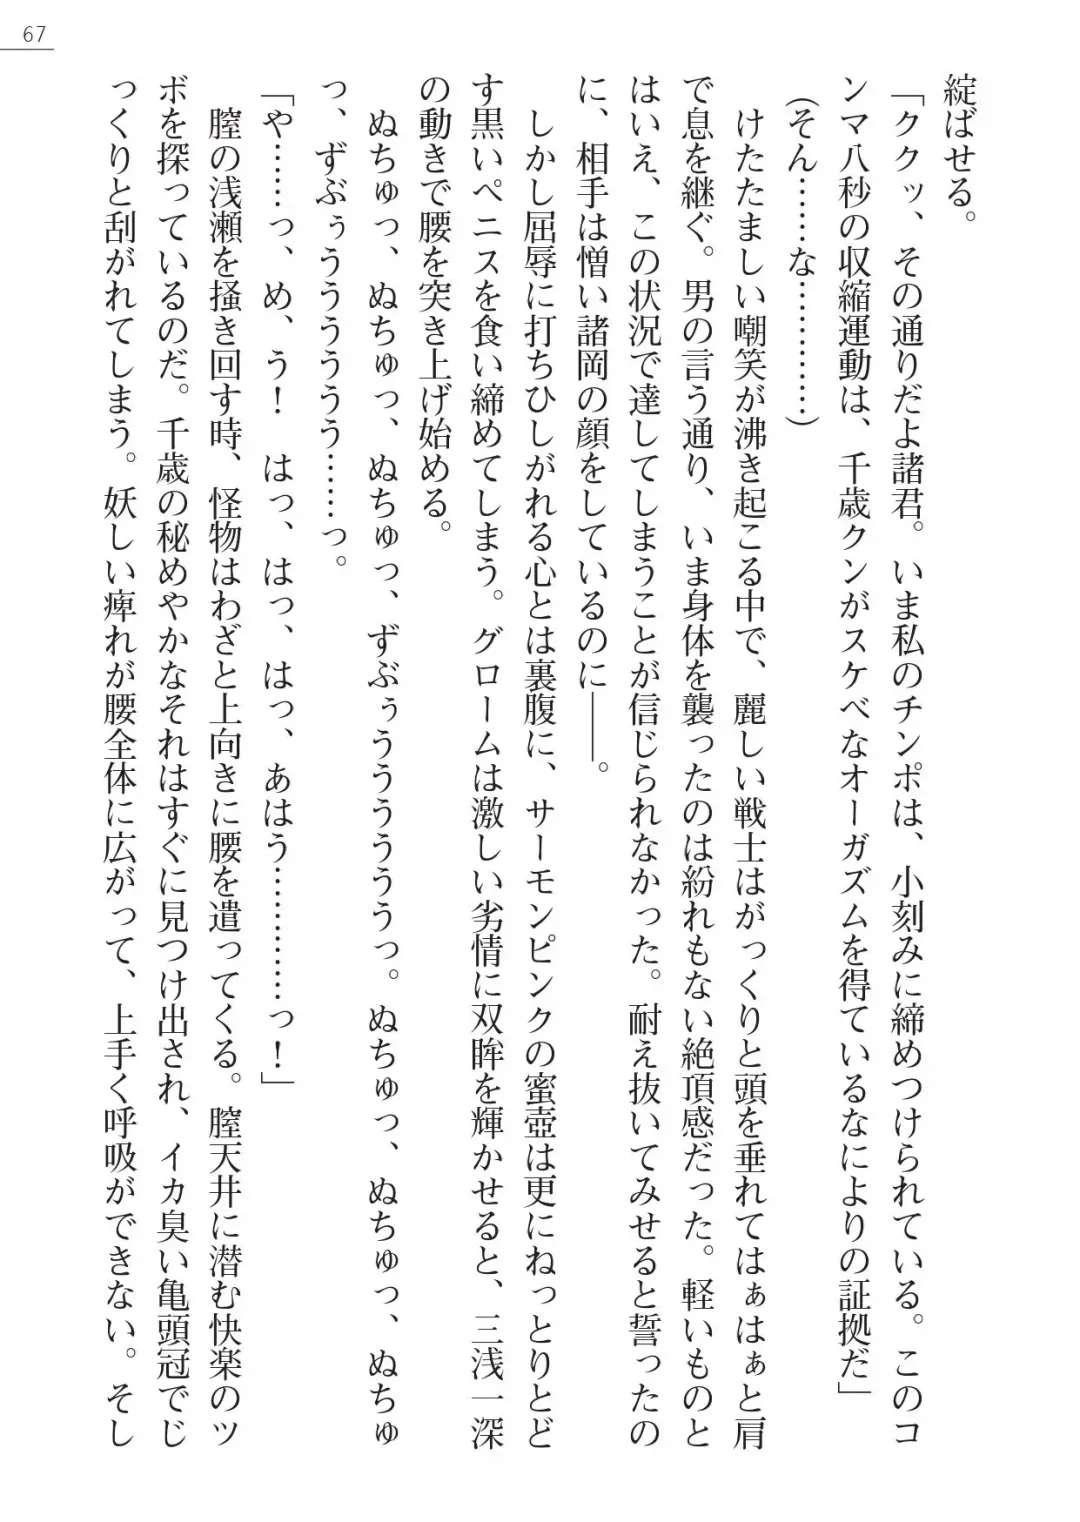 67
綻ばせる。
「ククッ、その通りだよ諸君。いま私のチンポは、小刻みに締めつけられている。このコ
ンマ八秒の収縮運動は、千歳クンがスケベなオーガズムを得ているなによりの証拠だ」
（そん……な…………）
けたたましい嘲笑が沸き起こる中で、麗しい戦士はがっくりと頭を垂れてはぁはぁと肩
で息を継ぐ。男の言う通り、いま身体を襲ったのは紛れもない絶頂感だった。軽いものと
はいえ、この状況で達してしまうことが信じられなかった。耐え抜いてみせると誓ったの
に、相手は憎い諸岡の顔をしているのに――。
しかし屈辱に打ちひしがれる心とは裏腹に、サーモンピンクの蜜壺は更にねっとりとど
す黒いペニスを食い締めてしまう。グロームは激しい劣情に双眸を輝かせると、三浅一深
の動きで腰を突き上げ始める。
ぬちゅっ、ぬちゅっ、ぬちゅっ、ずぶぅぅうううううっ。ぬちゅっ、ぬちゅっ、ぬちゅ
っ、ずぶぅうううううう……っ。
「や……っ、め、う！　はっ、はっ、はっ、あはう…………っ！」
膣の浅瀬を掻き回す時、怪物はわざと上向きに腰を遣ってくる。膣天井に潜む快楽のツ
ボを探っているのだ。千歳の秘めやかなそれはすぐに見つけ出され、イカ臭い亀頭冠でじ
っくりと刮がれてしまう。妖しい痺れが腰全体に広がって、上手く呼吸ができない。そし